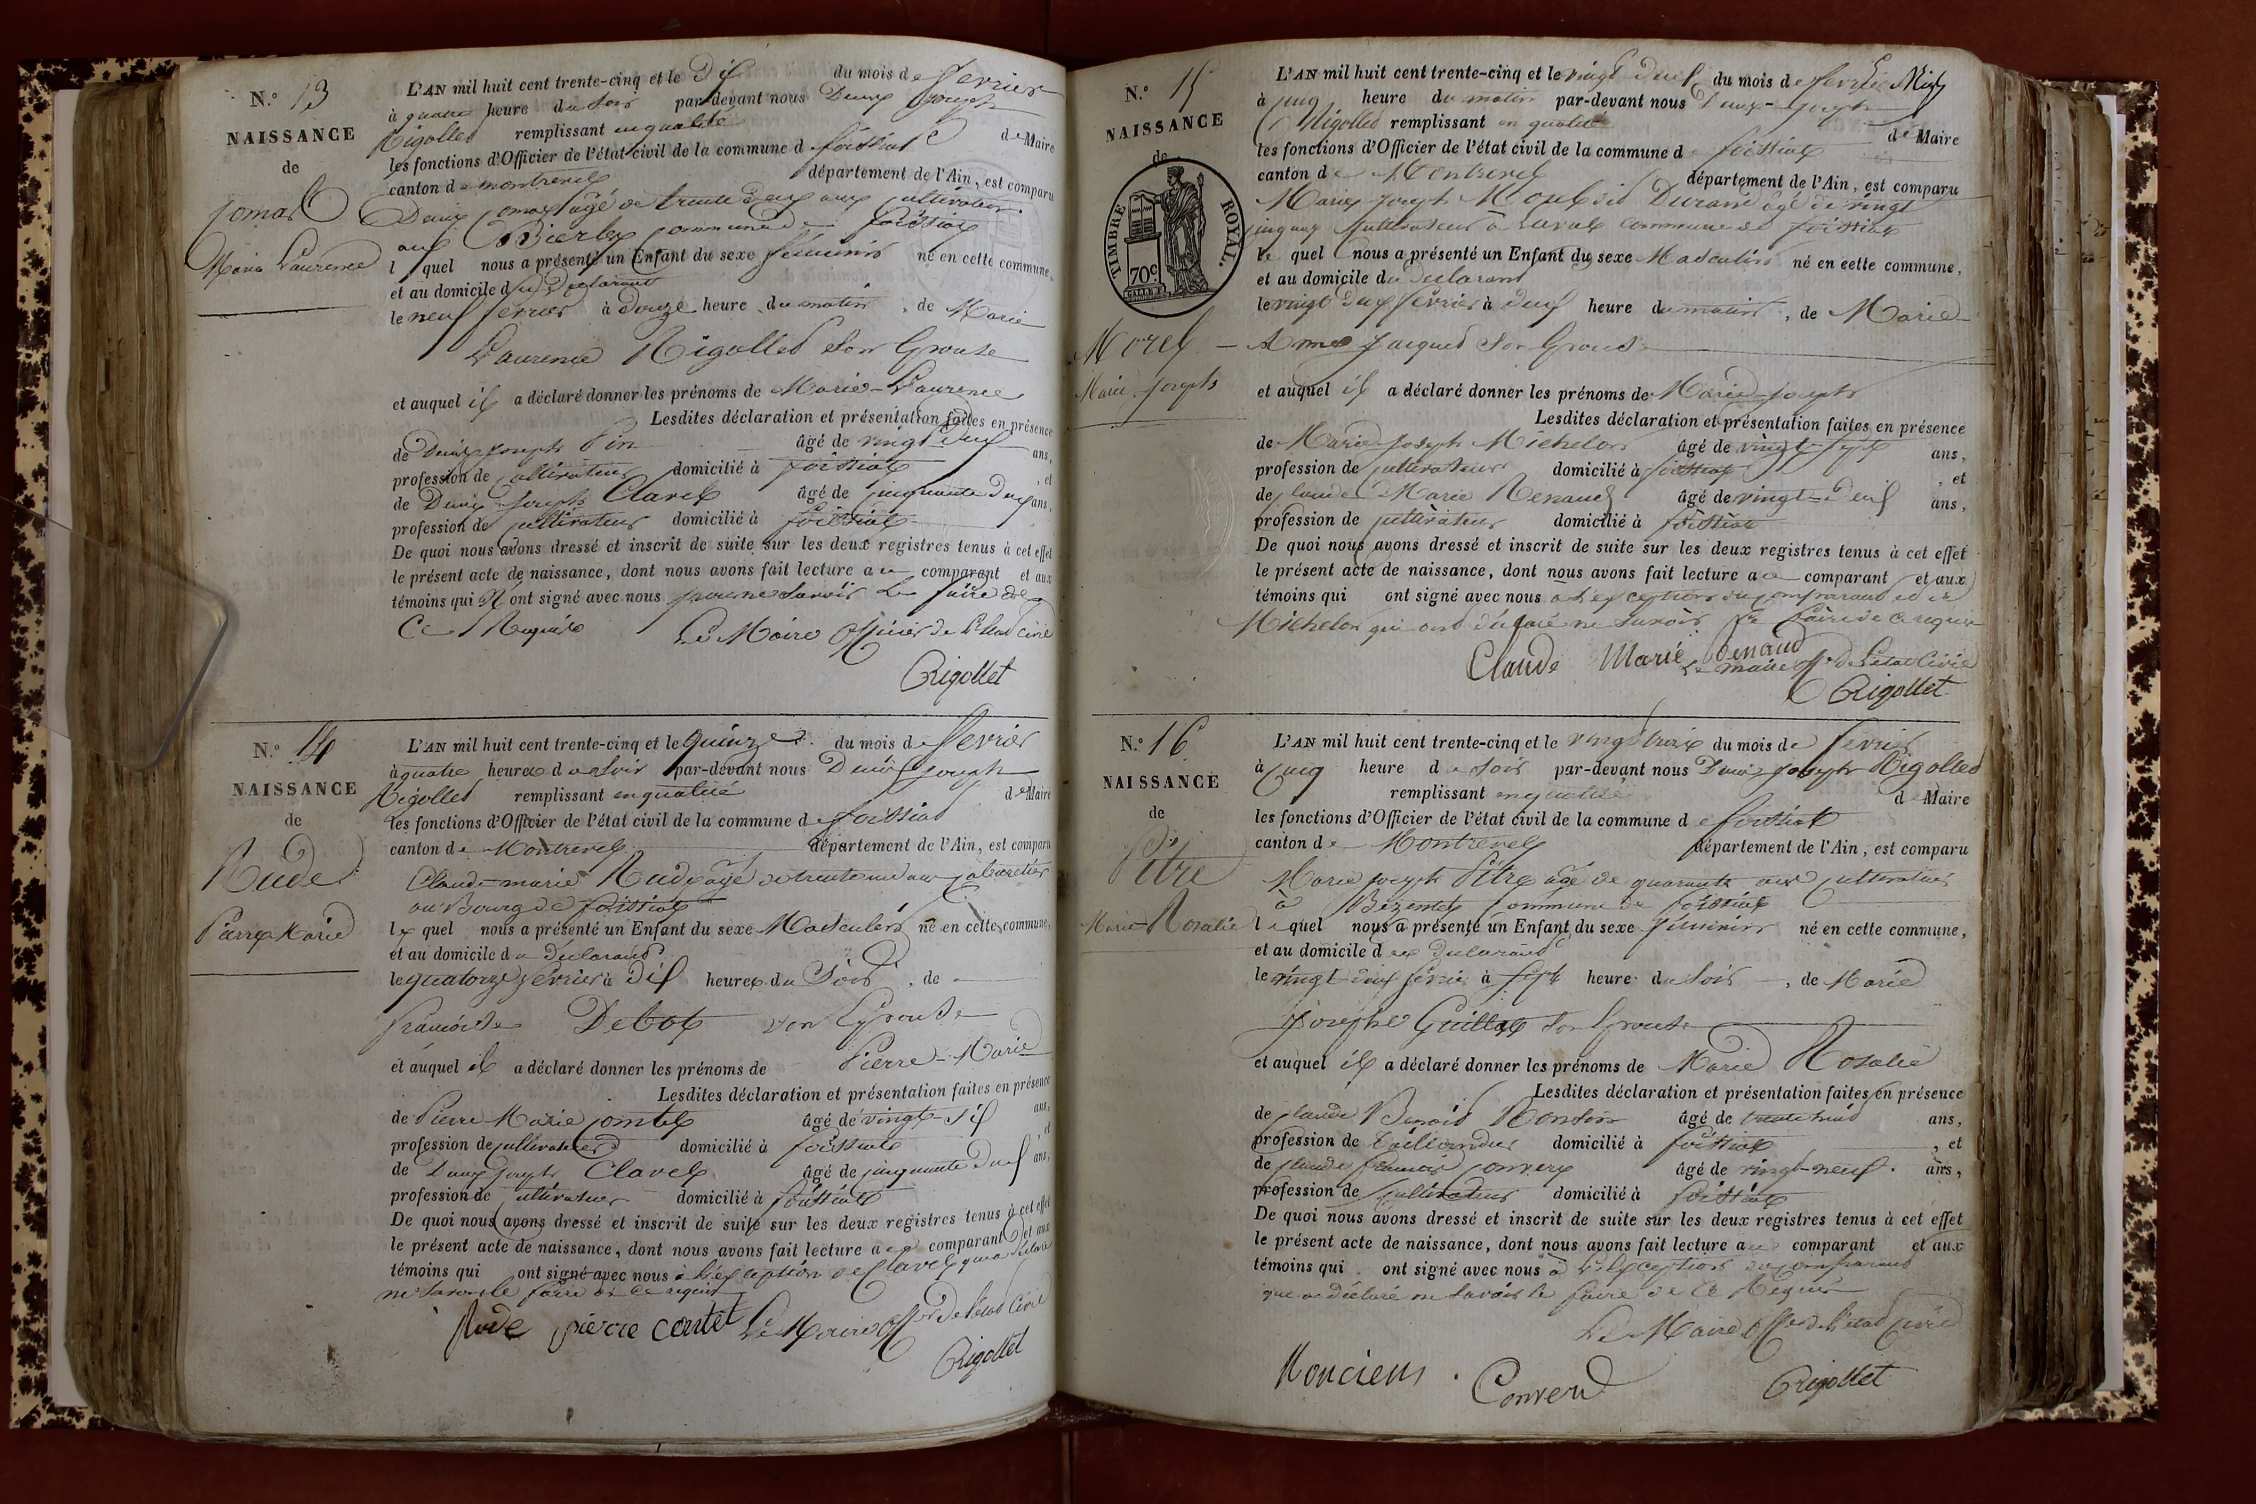 N.° 13
NAISSANCE
de
Marie Laurence
L'AN mil huit cent trente-cinq et le Dix du mois de fevrier
à quatre heure du soir par-devant nous Denis Joseph
Rigollet remplissant en qualité de Maire
les fonctions d'Officier de l'état civil de la commune de foissiat
canton de montrevel département de l'Ain, est comparu
Denis âgé de trente deux ans cultivateur
commune de foissiat
l quel nous a présenté un Enfant du sexe feminin né en cette commune,
et au domicile du Declarant
le neuf fevrier à douze heure du matin, de Marie
Laurence Rigollet son Epouse
et auquel il a déclaré donner les prénoms de Marie-Laurence
Lesdites déclaration et présentation faites en présence
de Denis Joseph Pin âgé de vingt ans,
profession de cultivateur domicilié à foissiat, et
de Denis Joseph Clavel âgé de cinquante deux ans,
profession de cultivateur domicilié à foissiat
De quoi nous avons dressé et inscrit de suite sur les deux registres tenus à cet effet
le présent acte de naissance, dont nous avons fait lecture au comparant et aux
témoins qui N ont signé avec nous pour ne savoir le faire de
ce Requis Le Maire officier de l'état civil
Rigollet
N.° 14
NAISSANCE
de
Rude
Pierre Marie
L'AN mil huit cent trente-cinq et le quinze du mois de fevrier
à quatre heures du soir par-devant nous Denis Joseph
Rigollet remplissant en qualité de Maire
les fonctions d'Officier de l'état civil de la commune de foissiat
canton de Montrevel département de l'Ain, est comparu
Claude marie Rude âgé de trente un ans cabaretier
au Bourg de foissiat
le quel nous a présenté un Enfant du sexe Masculin né en cette commune,
et au domicile du Declarant
le quatorze fevrier à Dix heures du Soir, de
francoise Debot son Epouse
et auquel il a déclaré donner les prénoms de Pierre-Marie
Lesdites déclaration et présentation faites en présence
de Pierre Marie âgé de vingt six ans,
profession de cultivateur domicilié à foissiat, et
de Denis Joseph Clavel âgé de cinquante deux ans,
profession de cultivateur domicilié à foissiat
De quoi nous avons dressé et inscrit de suite sur les deux registres tenus à cet effet
le présent acte de naissance, dont nous avons fait lecture au comparant et aux
témoins qui ont signé avec nous à l'exception de Clavel qui a déclaré
ne savoir le faire de ce requis
Rude pierre contet Le Maire offer de l'état Civil
Rigollet
N.° 15
NAISSANCE
de
TIMBRE ROYAL.
70c
Morel
Marie Joseph
L'AN mil huit cent trente-cinq et le vingt deux du mois de fevrier
à cinq heure du matin par-devant nous Denis-Joseph
Rigollet remplissant en qualité de Maire
les fonctions d'Officier de l'état civil de la commune de foissiat
canton de Montrevel département de l'Ain, est comparu
Marie Joseph Morel dit Durand âgé de vingt
cinq ans cultivateur à Laval commune de foissiat
le quel nous a présenté un Enfant du sexe Masculin né en cette commune,
et au domicile du declarant
le vingt deux fevrier à deux heure du matin, de Marie
Anne Jacquet son Epouse
et auquel il a déclaré donner les prénoms de Marie-Joseph
Lesdites déclaration et présentation faites en présence
de Marie Joseph Michelon âgé de vingt-sept ans,
profession de cultivateur domicilié à foissiat, et
de claude Marie Renaud âgé de vingt-deux ans,
profession de cultivateur domicilié à foissiat
De quoi nous avons dressé et inscrit de suite sur les deux registres tenus à cet effet
le présent acte de naissance, dont nous avons fait lecture au comparant et aux
témoins qui ont signé avec nous à l'exception du comparant et de
Michelon qui ont déclaré ne savoir le faire de ce requis
Claude Marie Renaud
Le maire offer de l'état Civil
Rigollet
N.° 16
NAISSANCE
de
Pitre
Marie-Rosalie
L'AN mil huit cent trente-cinq et le vingt trois du mois de fevrier
à cinq heure du soir par-devant nous Denis Joseph Rigollet
remplissant en qualité de Maire
les fonctions d'Officier de l'état civil de la commune de foissiat
canton de Montrevel département de l'Ain, est comparu
Marie Joseph Pitre âgé de quarante ans cultivateur
à Bezentet commune de foissiat
le quel nous a présenté un Enfant du sexe féminin né en cette commune,
et au domicile du declarant
le vingt deux février à sept heure du soir, de Marie
Josephe Guillot son Epouse
et auquel il a déclaré donner les prénoms de Marie Rosalie
Lesdites déclaration et présentation faites en présence
de claude Benoit âgé de trente huit ans,
profession de domicilié à foissiat, et
de claude francois convert âgé de vingt-neuf ans,
profession de cultivateur domicilié à foissiat
De quoi nous avons dressé et inscrit de suite sur les deux registres tenus à cet effet
le présent acte de naissance, dont nous avons fait lecture au comparant et aux
témoins qui ont signé avec nous à l'exception du comparant
qui a déclaré ne savoir le faire de ce Requis
Le Maire offer de l'état Civil
Monciens Convert Rigollet